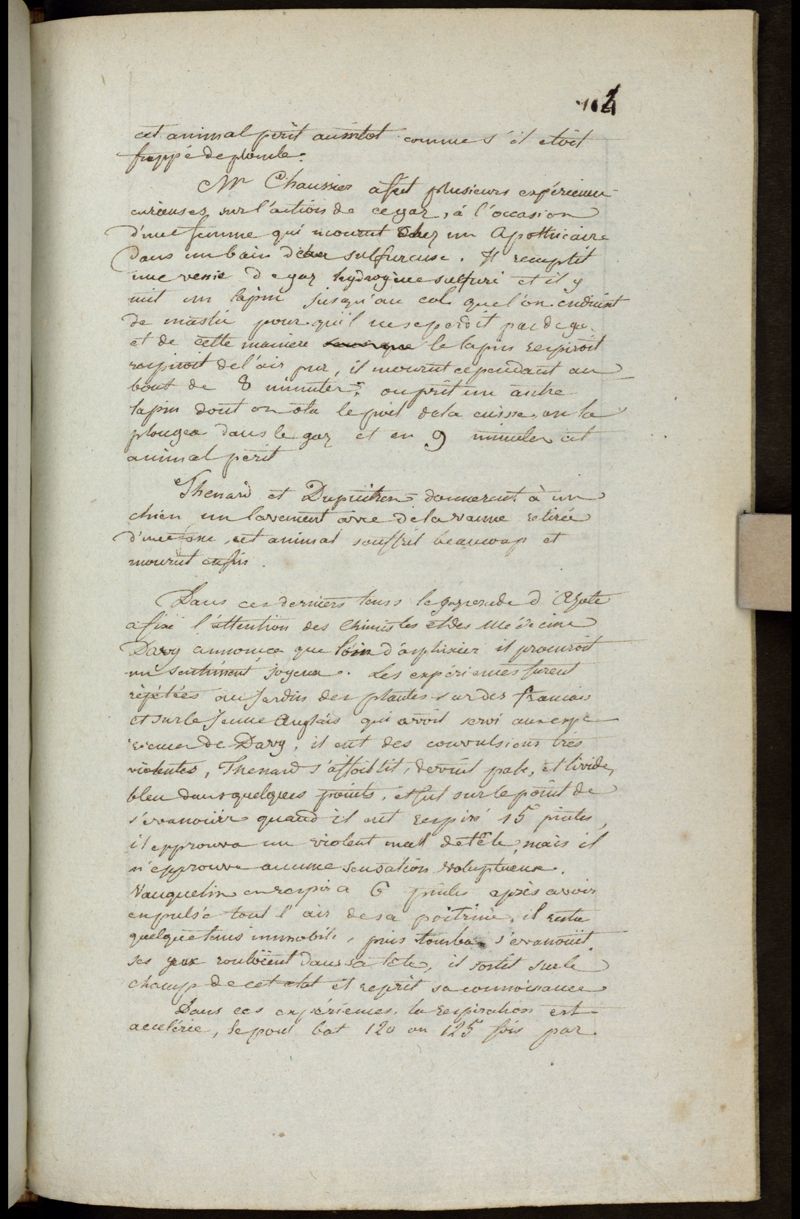 cet animal périt aussitot comme s'il etoit
frappé de plomb.
Mr Chaussier a fait plusieurs expériences
curieuses sur l'action de ce gaz, à l'occasion
d'une femme qui mourut chez un Apothicaire
dans un bain d'eau sulfureuse. Il remplit
une vessie de gaz hydrogène sulfuré et il y
mit un lapin jusqu'au col que l'on enduisit
de mastic pour qu'il ne se perdit pas de gaz
et de cette maniere le lapin respiroit
respiroit de l'air pur, il mourut cependant au
bout de 8 minutes; on prit un autre
lapin dont on ota le poil de la cuisse, on la
plongea dans le gaz et en 9 minutes cet
animal périt
Thenard et Dupuitren donnerent à un
chien un lavement avec de la vanne retirée
d'une fosse, cet animal souffrit beaucoup et
mourut enfin.
Dans ces derniers tems le gaz oxide d'Azote
a fixé l'attention des Chimistes et des Médecins
Davy annonca que loin d'asphixier il procuroit
un sentiment joyeux. Les expériences furent
répétées au Jardin des plantes sur des francais
et sur le Jeune Anglais qui avoit servi aux expe
riences de Davy, il eut des convulsions très
violentes, Thenard s'affoiblit, devint pale, et livide,
bleu dans quelques points, et fut sur le point de
s'évanouir quand il eut respiré 15 pintes,
il epprouva un violent mal de tête, mais il
n'epprouva aucune sensation voluptueuse.
Vauquelin en respira 6 pintes après avoir
expulsé tout l'air de sa poitrine, il resta
quelque tems immobile, puis tomba s'evanouit.
ses yeux rouloient dans sa tête, il sortit sur le
champ de cet etat et reprit sa connoissance
Dans ces expériences la respiration est
accélérée, le pouls bat 120 ou 125 fois par